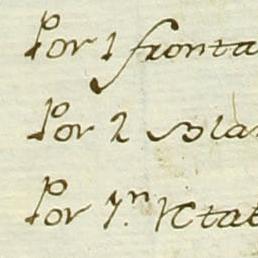 Por 1 fronta
Por 2 Bla
Por 1,n